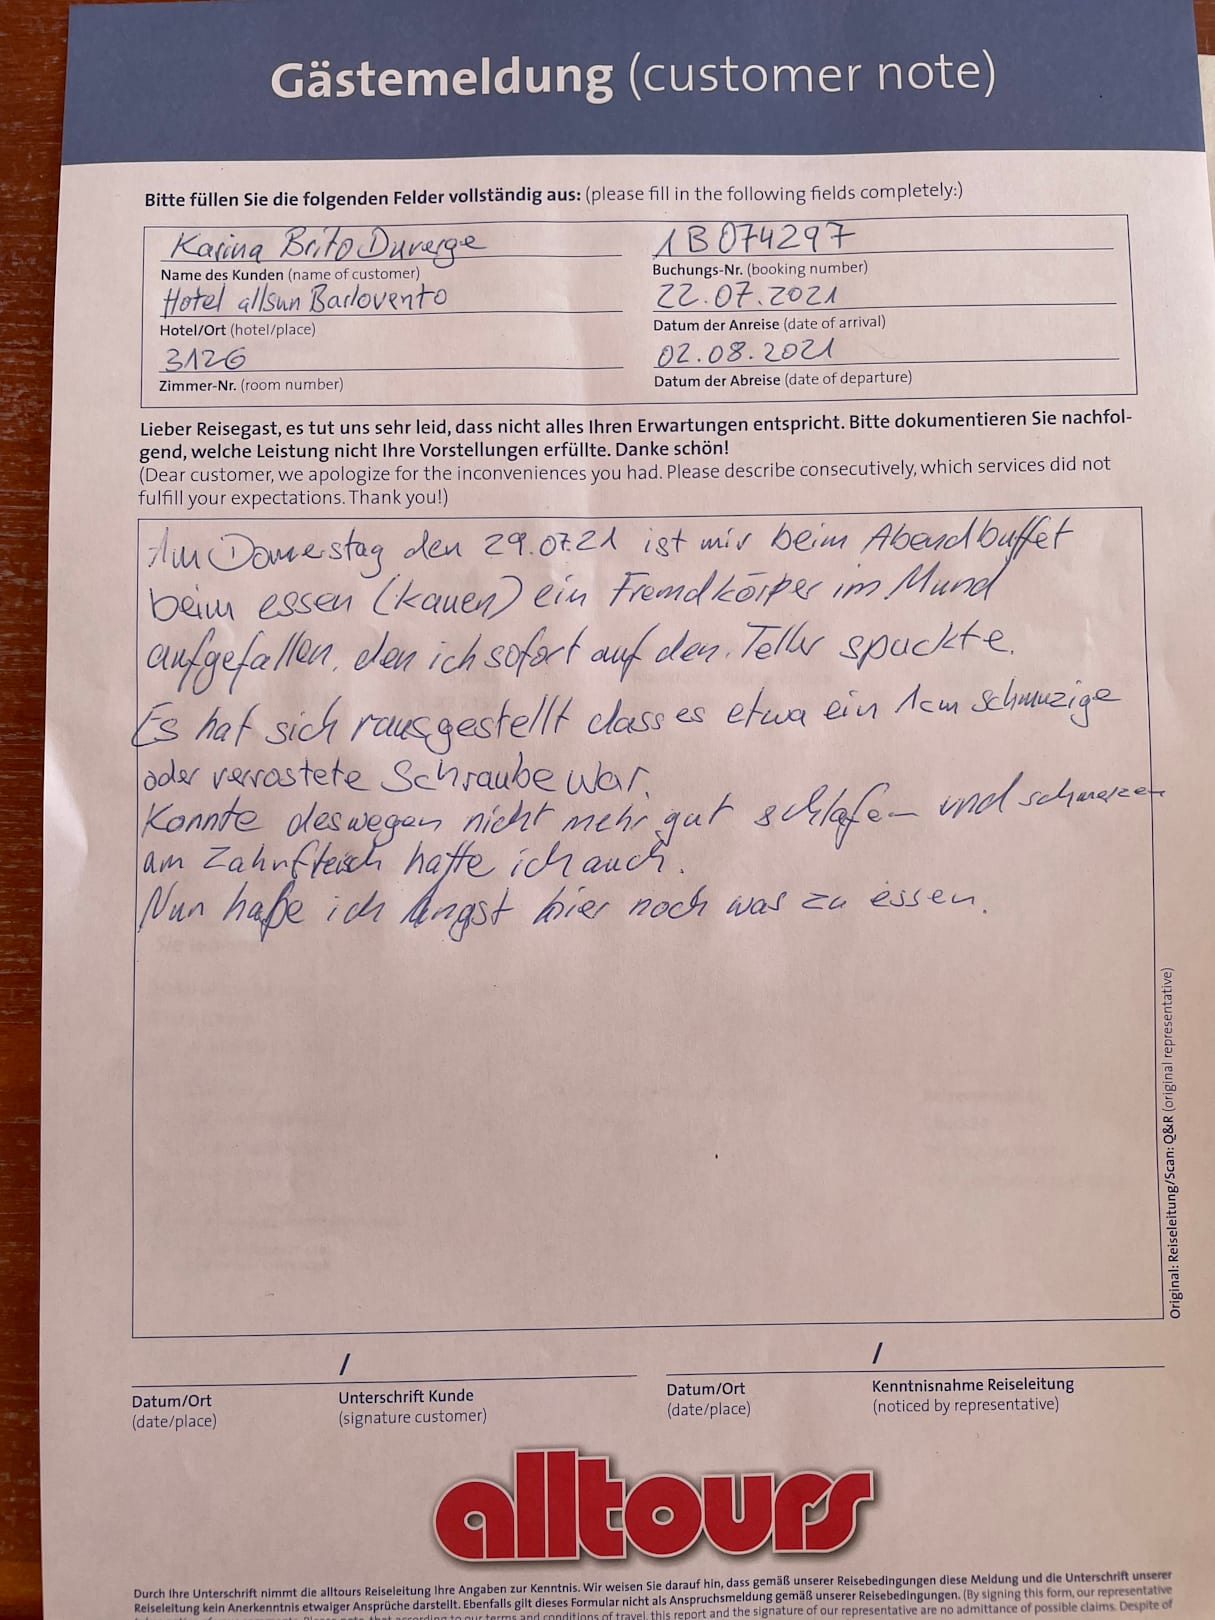 Gästemeldung (customer note)
Bitte füllen Sie die folgenden Felder vollständig aus: (please fill in the following fields completely:)
Karina Brito Duverge
Name des Kunden (name of customer)
Hotel allsun Barlovento
Hotel/Ort (hotel/place)
3126
Zimmer-Nr. (room number)
1B074297
Buchungs-Nr. (booking number)
22.07.2021
Datum der Anreise (date of arrival)
02.08.2021
Datum der Abreise (date of departure)
Lieber Reisegast, es tut uns sehr leid, dass nicht alles Ihren Erwartungen entspricht. Bitte dokumentieren Sie nachfol-
gend, welche Leistung nicht Ihre Vorstellungen erfüllte. Danke schön!
(Dear customer, we apologize for the inconveniences you had. Please describe consecutively, which services did not
fulfill your expectations. Thank you!)
Am Donnerstag den 29.07.21 ist mir beim Abendbuffet
beim essen (kauen) ein Fremdkörper im Mund
aufgefallen, den ich sofort auf den Teller spuckte.
Es hat sich rausgestellt dass es etwa ein 1cm schmuzige
oder verrostete Schraube war.
Konnte deswegen nicht mehr gut schlafen und schmerzen
am Zahnfleisch hatte ich auch.
Nun habe ich Angst hier noch was zu essen.
Original: Reiseleitung/Scan: Q&R (original representative)
/
Datum/Ort Unterschrift Kunde
(date/place) (signature customer)
/
Datum/Ort Kenntnisnahme Reiseleitung
(date/place) (noticed by representative)
alltours
Durch Ihre Unterschrift nimmt die alltours Reiseleitung Ihre Angaben zur Kenntnis. Wir weisen Sie darauf hin, dass gemäß unserer Reisebedingungen diese Meldung und die Unterschrift unserer
Reiseleitung kein Anerkenntnis etwaiger Ansprüche darstellt. Ebenfalls gilt dieses Formular nicht als Anspruchsmeldung gemäß unserer Reisebedingungen. (By signing this form, our representative
according to our terms and conditions of travel, this report and the signature of our representative are no admittance of possible claims. Despite of